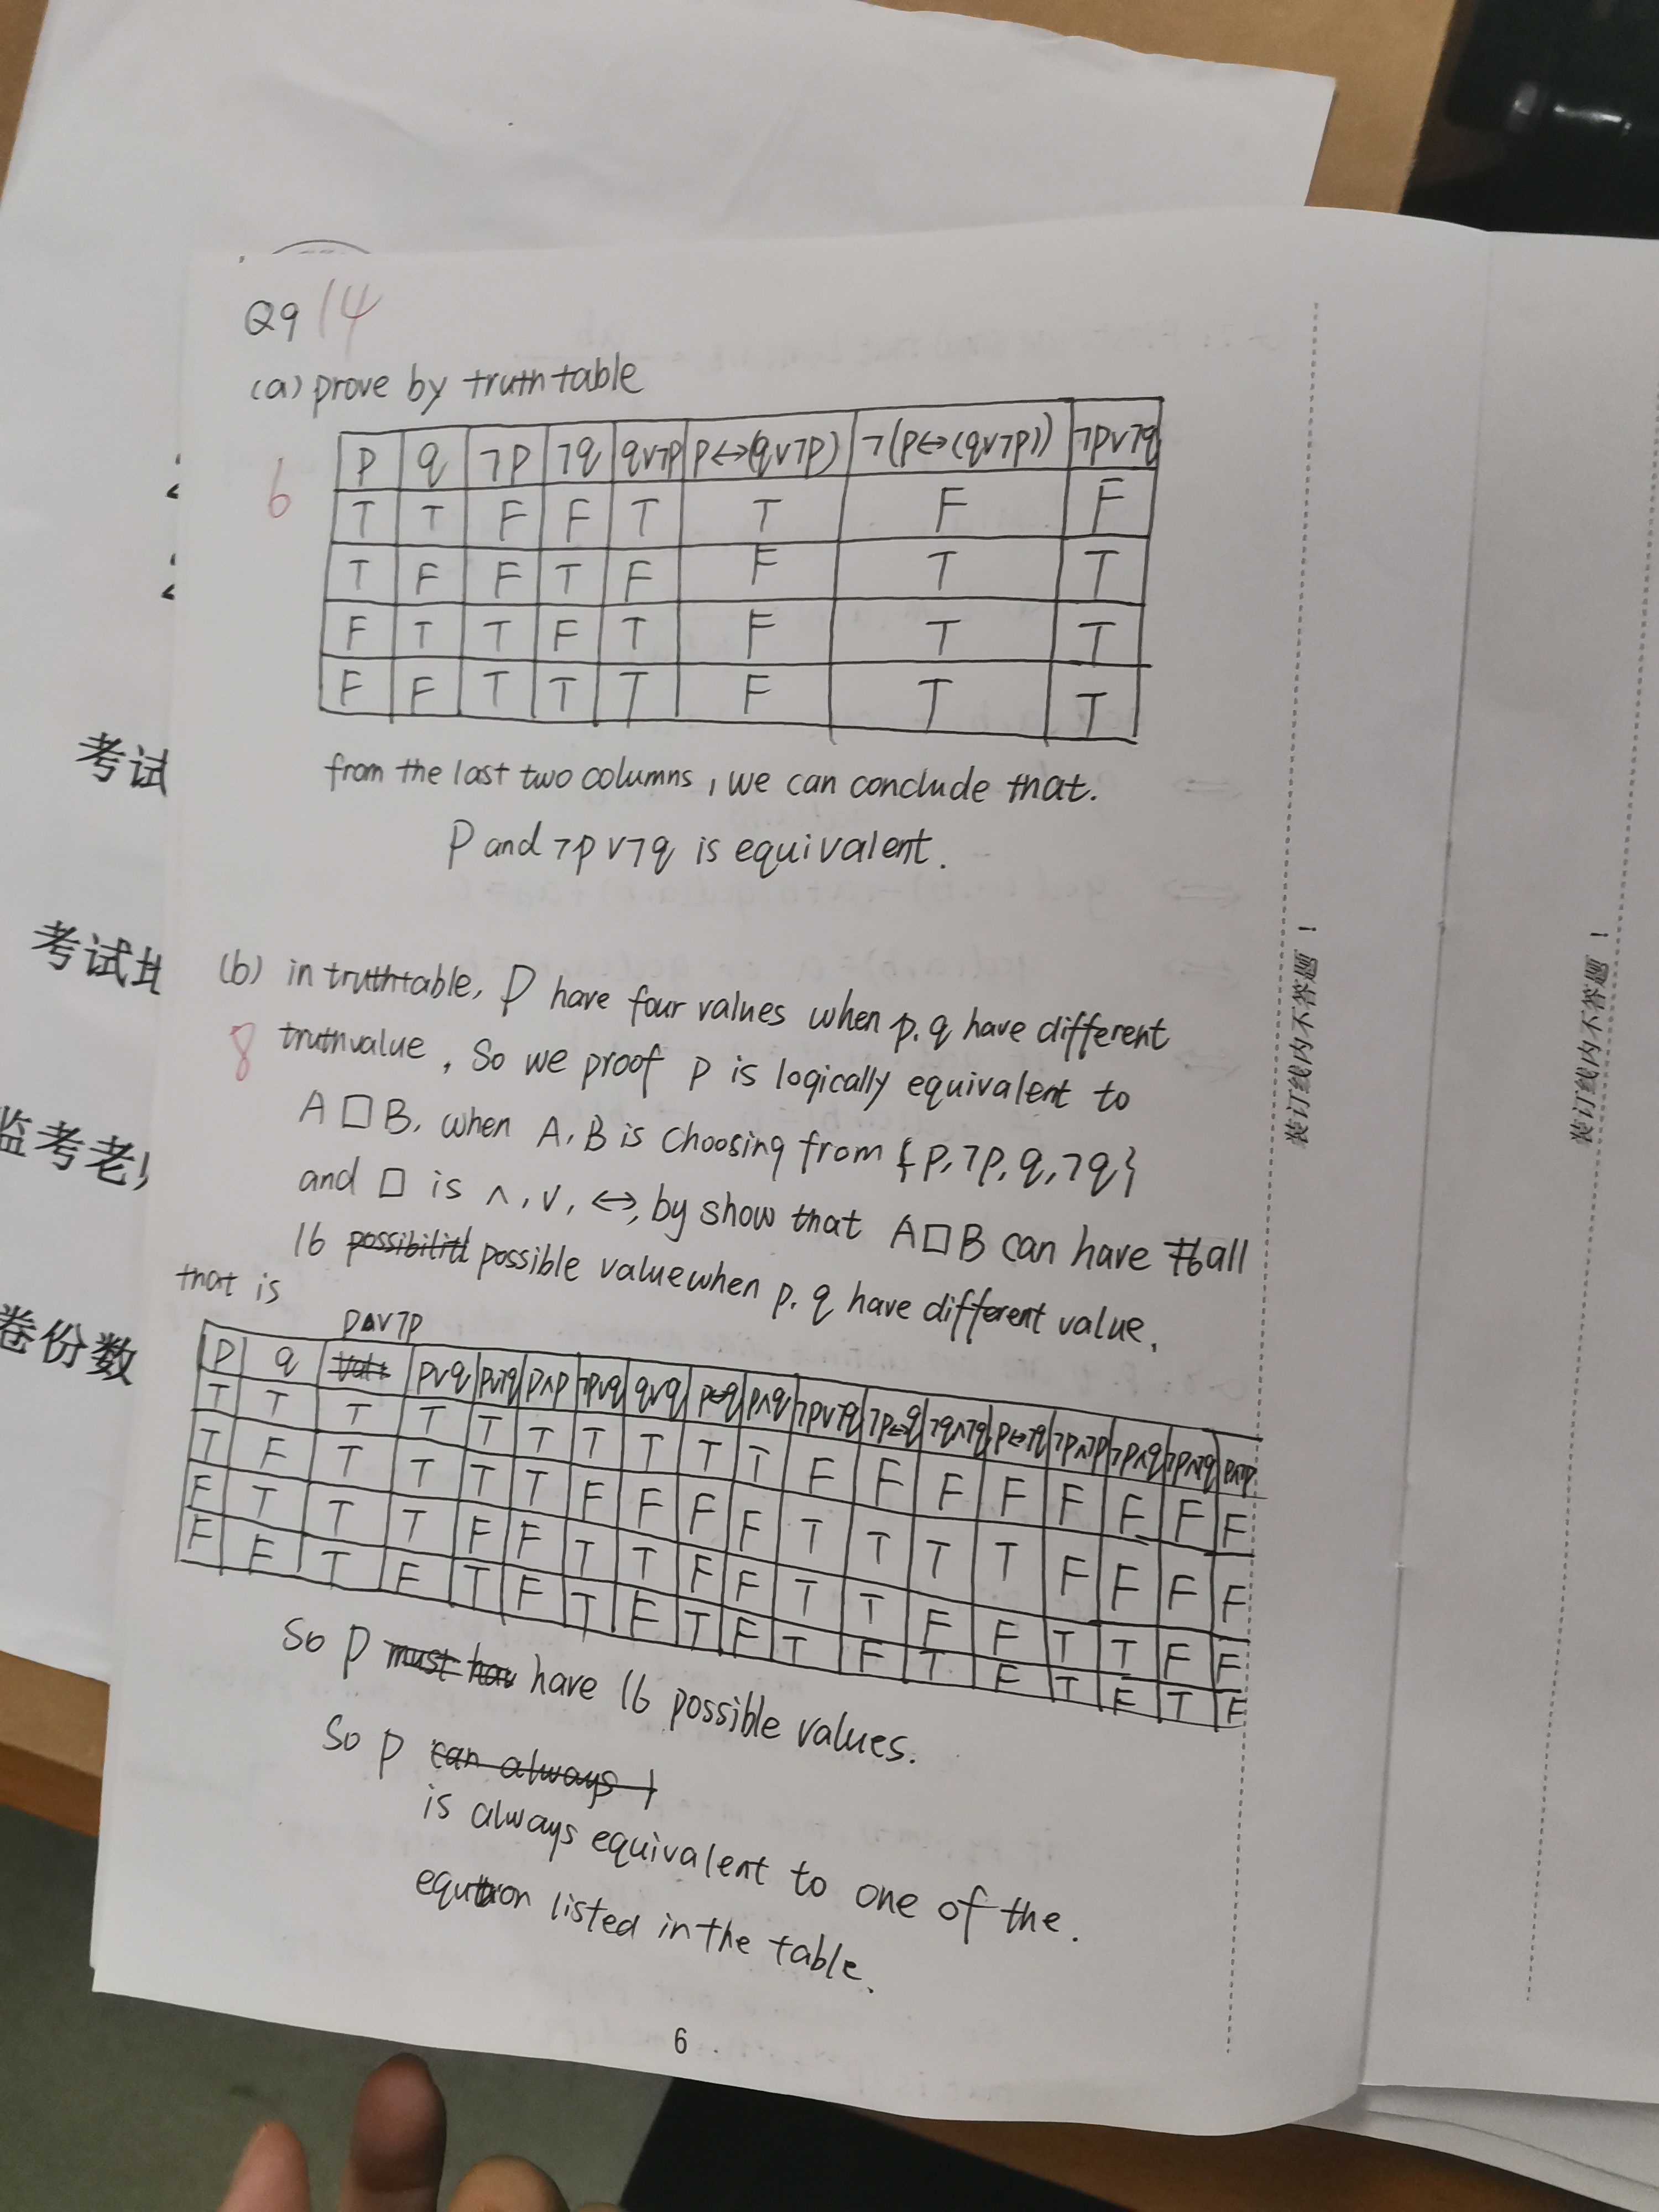 Q9 14
(a) prove by truth table
6
p q ¬p ¬q q∨¬p p↔(q∨¬p) ¬(p↔(q∨¬p)) ¬p∨¬q
T T F F T T F F
T F F T F F T T
F T T F T F T T
F F T T T F T T
from the last two columns, we can conclude that.
P and ¬p∨¬q is equivalent.
(b) in truthtable, P have four values when p.q have different
8 truthvalue, So we proof P is logically equivalent to
A□B, when A,B is choosing from {p,¬p,q,¬q}
and □ is ∧,∨,↔, by show that A□B can have all
16 possible value when p.q have different value.
that is
p∨¬p
p q p∨q p∨¬q p∧p ¬p∨q q∨q p↔q p∧q ¬p∨¬q ¬p↔q ¬q∧¬q p↔¬q ¬p∧¬p ¬p∧q ¬p∧¬q p∧¬p
T T T T T T T T T T F F F F F F F F
T F T T T T F F F F T T T T F F F F
F T T T F F T T F F T T F F T T F F
F F T F T F T F T F T F T F T F T F
So P have 16 possible values.
So P
is always equivalent to one of the.
listed in the table.
6
考试
考试
监考老
卷份数
装订线内不答题！
装订线内不答题！